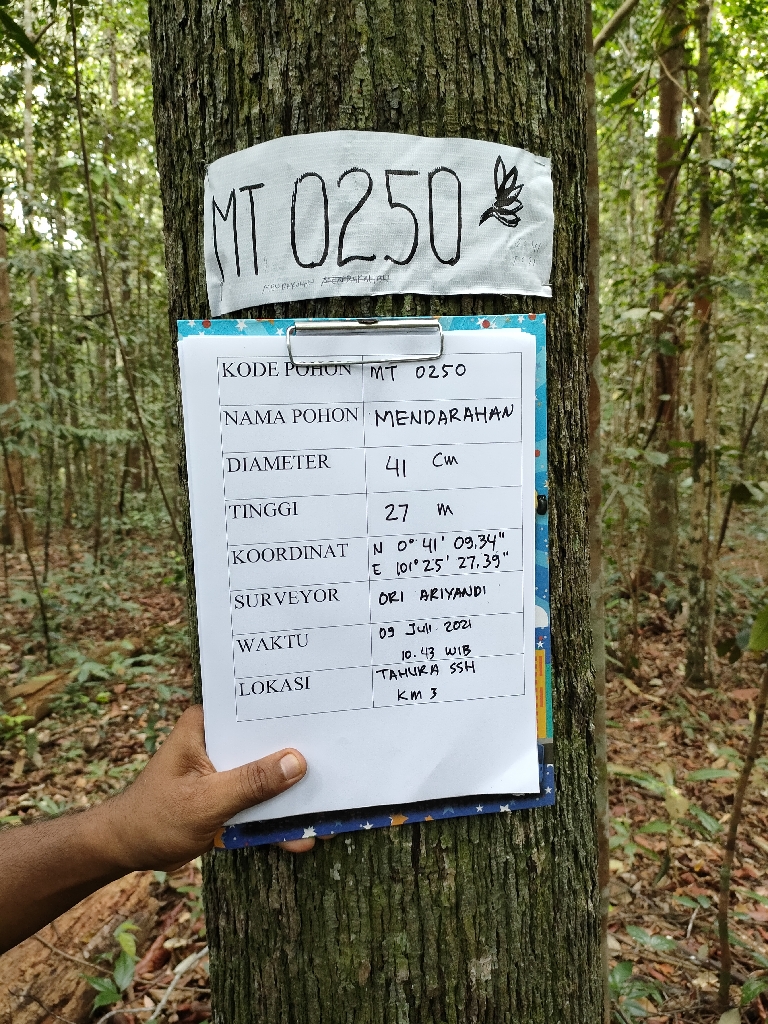 MT 0250
KODE POHON MT 0250
NAMA POHON MENDARAHAN
DIAMETER 41 Cm
TINGGI 27 m
KOORDINAT N 0° 41' 09.34"
E 101° 25' 27.39"
SURVEYOR ORI ARIYANDI
WAKTU 09 Juli 2021
10.43 WIB
LOKASI TAHURA SSH
KM 3